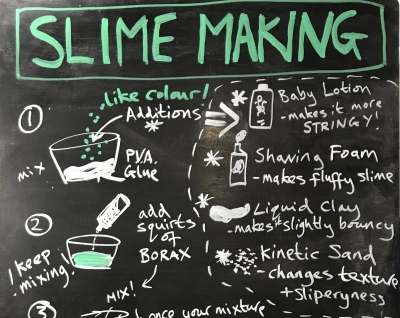 SLIME MAKING
①
like colour!
Additions
*
mix
PVA
Glue
②
add
squirts
of
BORAX
keep
mixing!
MIX!
③
once your mixture
=> * Baby Lotion
- makes it more
STRINGY!
* Shaving Foam
- makes fluffy slime
* Liquid Clay
- makes it slightly bouncy
* Kinetic Sand
- changes texture
+ sliperyness